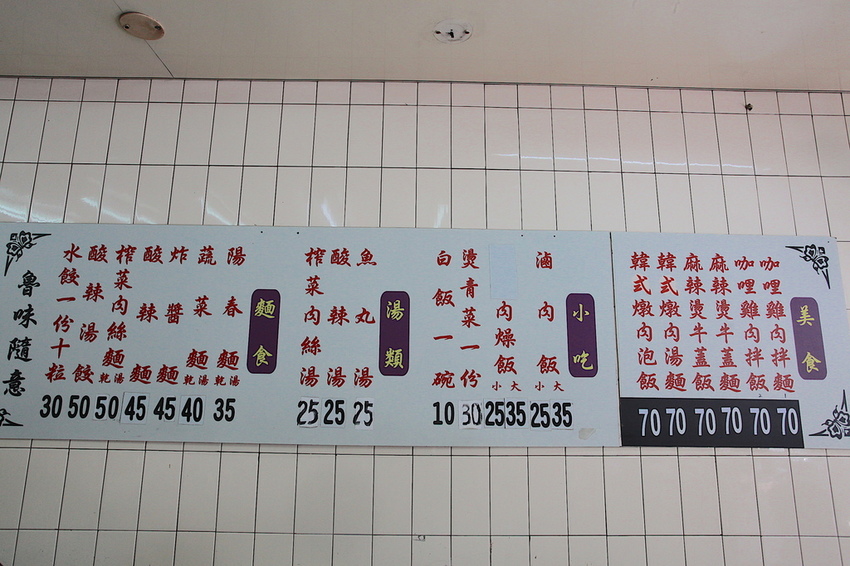 美食
咖哩雞肉拌麵 70
咖哩雞肉拌飯 70
麻辣燙牛蓋麵 70
麻辣燙牛蓋飯 70
韓式燉肉湯麵 70
韓式燉肉泡飯 70
小吃
滷肉飯 小 大 25 35
肉燥飯 小 大 25 35
燙青菜一份 30
白飯一碗 10
湯類
魚丸湯 25
酸辣湯 25
榨菜肉絲湯 25
麵食
陽春麵 乾湯 35
蔬菜麵 乾湯 40
炸醬麵 45
酸辣麵 45
榨菜肉絲麵 乾湯 50
酸辣湯餃 50
水餃一份十粒 30
魯味隨意